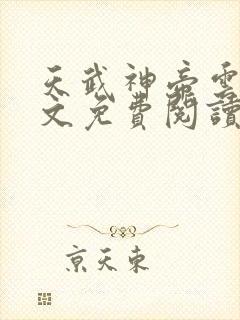 天武神帝雲
文免費閱讀
京天東